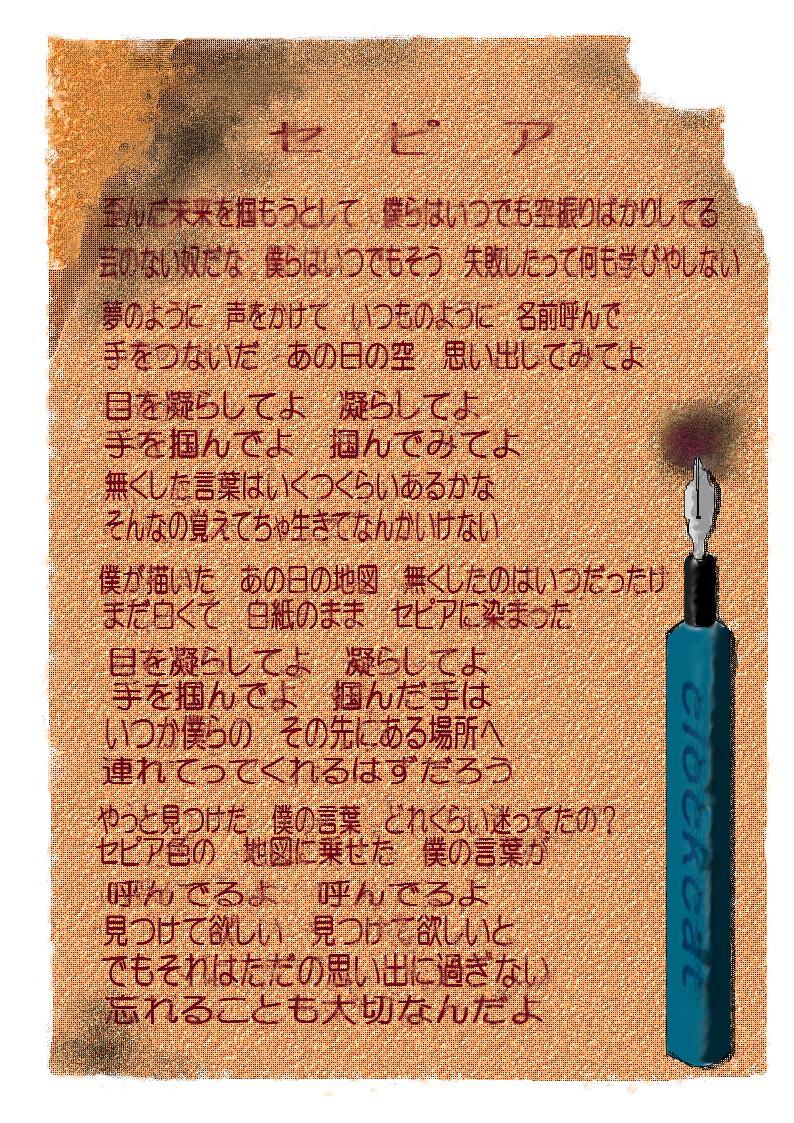 セピア
歪んだ未来を掴もうとして　僕らはいつでも空振りばかりしてる
芸のない奴だな　僕らはいつでもそう　失敗したって何も学びやしない
夢のように　声をかけて　いつものように　名前呼んで
手をつないだ　あの日の空　思い出してみてよ
目を凝らしてよ　凝らしてよ
手を掴んでよ　掴んでみてよ
無くした言葉はいくつくらいあるかな
そんなの覚えてちゃ生きてなんかいけない
僕が描いた　あの日の地図　無くしたのはいつだったけ
まだ白くて　白紙のまま　セピアに染まった
目を凝らしてよ　凝らしてよ
手を掴んでよ　掴んだ手は
いつか僕らの　その先にある場所へ
連れてってくれるはずだろう
やっと見つけた　僕の言葉　どれくらい迷ってたの？
セピア色の　地図に乗せた　僕の言葉が
呼んでるよ　呼んでるよ
見つけて欲しい　見つけて欲しいと
でもそれはただの思い出に過ぎない
忘れることも大切なんだよ
clockcat